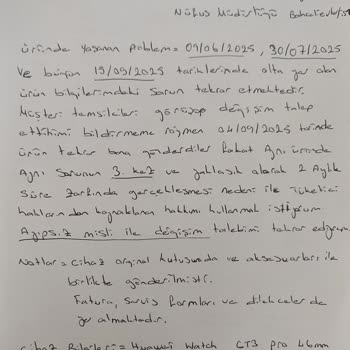 Nüfus Müdürlüğü Bahçelievler/İST
Üründe Yaşanan Problem = 09/06/2025, 30/07/2025
Ve bugün 15/09/2025 tarihlerinde alta yer alan
ürün bilgilerindeki Sorun tekrar etmektedir.
Müşteri temsilcileri görüşüp değişim talep
ettiğimi bildirmeme rağmen 04/09/2025 tarinde
ürün tekrar bana gönderdiler fakat Aynı üründe
Aynı Sorunun 3. kez ve yaklaşık olarak 2 Aylık
Süre Zarfında gerçekleşmesi nedeni ile tüketici
haklarından kaynaklanan hakkımı kullanmak istiyorum
Ayıpsız misli ile değişim talebimi tekrar ediyorum.
Notlar = Cihaz orginal kutusunda ve aksesuarları ile
birlikte gönderilmiştir.
Fatura, Servis formları ve dilekçeler de
yer almaktadır.
Cihaz Bilgileri = Huawei Watch GT3 pro 46mm